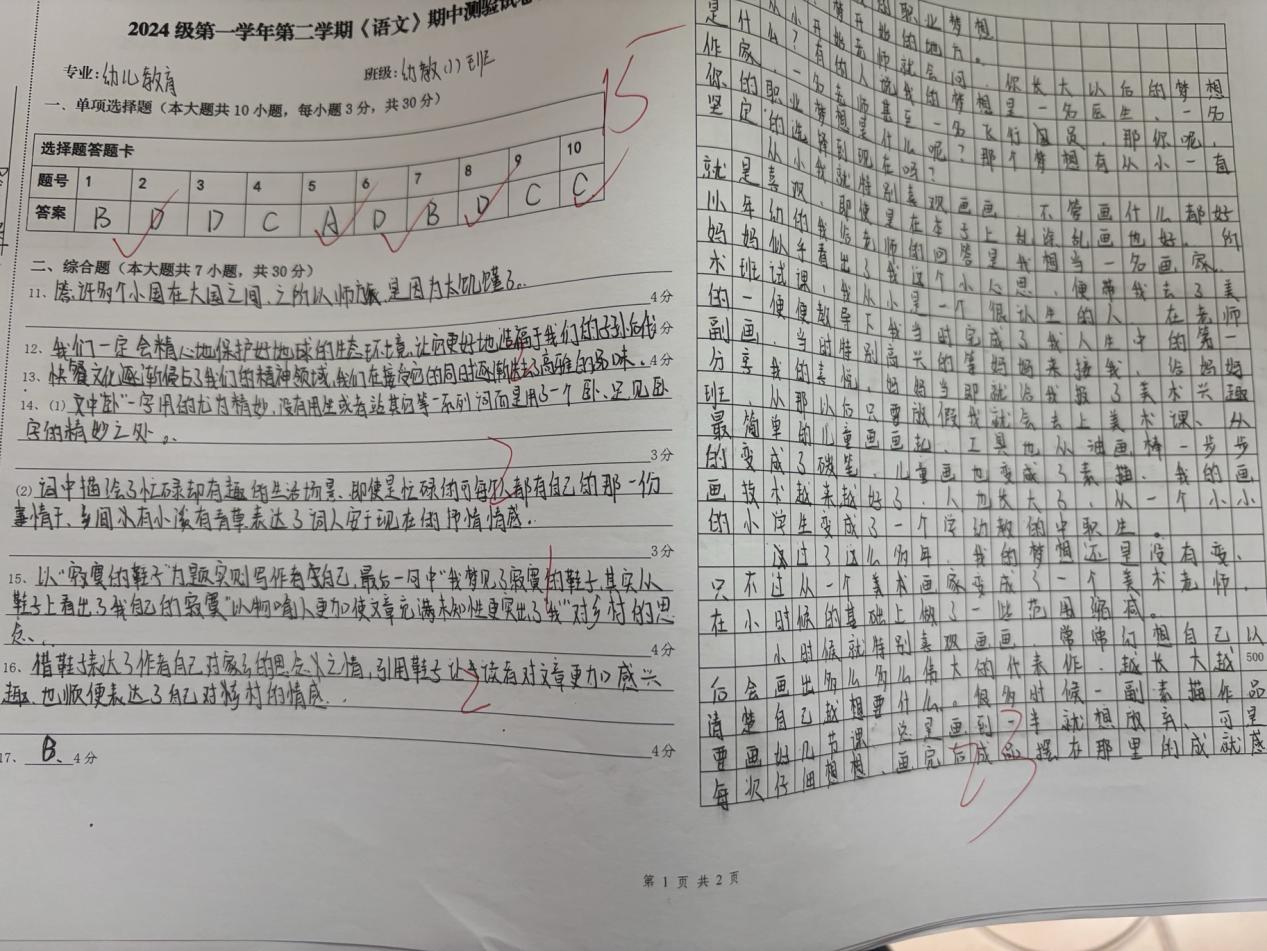 2024 级第一学年第二学期《语文》期中测验试卷
专业:幼儿教育 班级:幼教(1)班
15
一、单项选择题（本大题共 10 小题，每小题 3 分，共 30 分）
选择题答题卡
题号 1 2 3 4 5 6 7 8 9 10
答案 B D D C A D B D C C
二、综合题（本大题共 7 小题，共 30 分）
11、答:许多个小国在大国之间,之所以师旅,是因为太饥馑了。
4分
12、我们一定会精心地保护好地球的生态环境,让它更好地造福于我们的子孙后代
分
13、快餐文化逐渐侵占了我们的精神领域,我们在接受它的同时逐渐失去了高雅的品味. 4分
14、(1) 文中"卧"一字用的尤为精妙,没有用坐或者站其它等一系列词而是用了一个 卧、足见卧
字的精妙之处。
3分
(2) 词中描绘了忙碌却有趣的生活场景、即使是忙碌的可每个人都有自己的那一份
事情干、乡间小有小溪有青草表达了词人安于现在的 情感.
3分
15、以"寂寞的鞋子"为题实则写作者 自己,最后一句中"我梦见了寂寞的鞋子,其实从
鞋子上看出了我自己的寂寞"以物喻人更加使文章充满未知性更突出了"我"对乡村的思
念、.
4分
16、借鞋子表达了作者自己对家乡的思念之情,引用鞋子让读者对文章更加感兴
趣.也顺便表达了自己对乡村的情感.
2
4分
17、B、4分
的职业梦想
从小开始,梦开始的地方。
是什么?有的人说我的梦想是一名医生、一名
作家、一名老师甚至一名飞行员,那你呢,
你的职业梦想是什么呢?那个梦想有从小一直
坚定的选择到现在吗?
从小我就特别喜欢画画、不管画什么都好
就是喜欢,即使是在本子上乱涂乱画也好。所
以年幼的我给老师的回答是我想当一名画家。
妈妈似乎看出了我这个小心思,便带我去了美
术班试课,我从小是一个很认生的人、在老师
的一便便教导下我当时完成了我人生中的第一
副画、当时特别高兴的等妈妈来接我、给妈妈
分享我的喜悦,妈妈当即就给我报了美术兴趣
班、从那以后只要放假我就会去上美术课、从
最简单的儿童画画起、工具也从油画棒一步步
的变成了碳笔、儿童画也变成了素描、我的画
画技术越来越好了、人也长大了,从一个小小
的小学生变成了一个学幼教的中职生。
过了这么多年、我的梦想还是没有变、
只不过从一个美术画家变成了一个美术老师,
在小时候的基础上做了一些范围缩减。
小时候就特别喜欢画画、常常幻想自己以
后会画出多么多么伟大的代表作、越长大越 500
清楚自己越想要什么。很多时候一副素描作品
要画好几节课、总是画到一半就想放弃、可是
每次仔细想想、画完后成品摆在那里的成就感
23
第 1 页 共 2 页